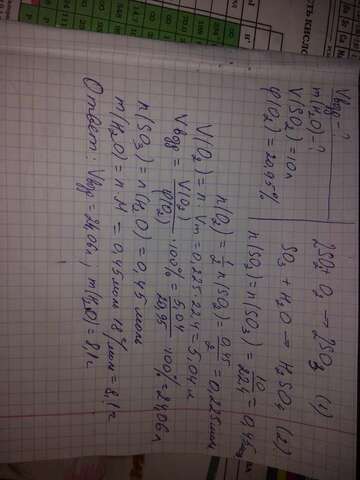 Vвозд = ?
m(H₂O) = ?
V(SO₂) = 10л
φ(O₂) = 20,95%
2SO₂ + O₂ → 2SO₃ (1)
SO₃ + H₂O → H₂SO₄ (2)
n(SO₂) = n(SO₃) = 10/22,4 = 0,45моль
n(O₂) = 1/2 n(SO₂) = 0,45/2 = 0,225моль
V(O₂) = n·Vm = 0,225·22,4 = 5,04 л
Vвозд = V(O₂)/φ(O₂) ·100% = 5,04/20,95 ·100% = 24,06л
n(SO₃) = n(H₂O) = 0,45моль
m(H₂O) = n·M = 0,45моль·18г/моль = 8,1г
Ответ: Vвозд = 24,06л, m(H₂O) = 8,1г